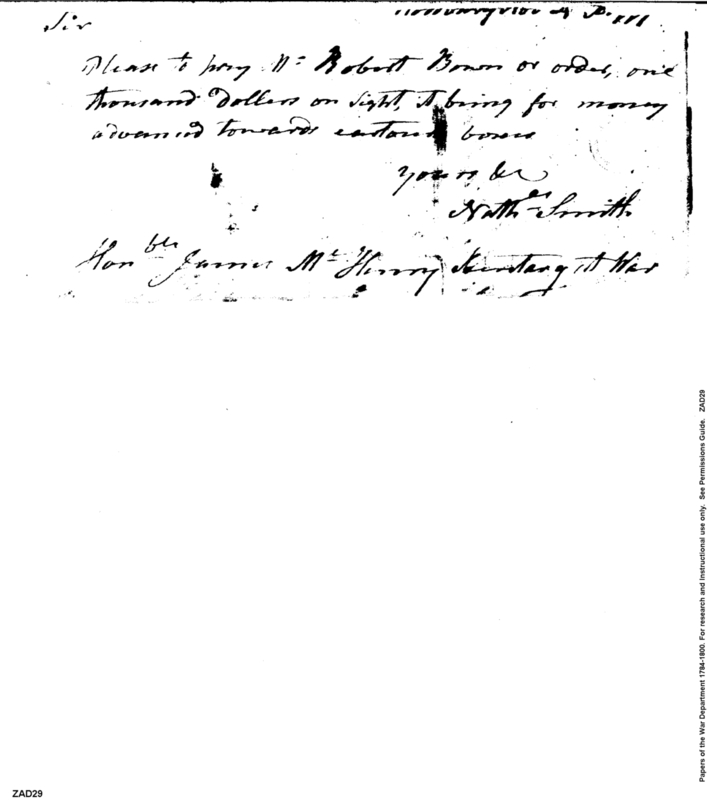 Sir
Please to pay Mr Robert Bowen or order, one
thousand dollars on sight, it being for money
advanced towards boxes
Yours &c
Nathl Smith
Honble James McHenry Secretary at War
Papers of the War Department 1784-1800. For research and instructional use only. See Permissions Guide. ZAD29
ZAD29